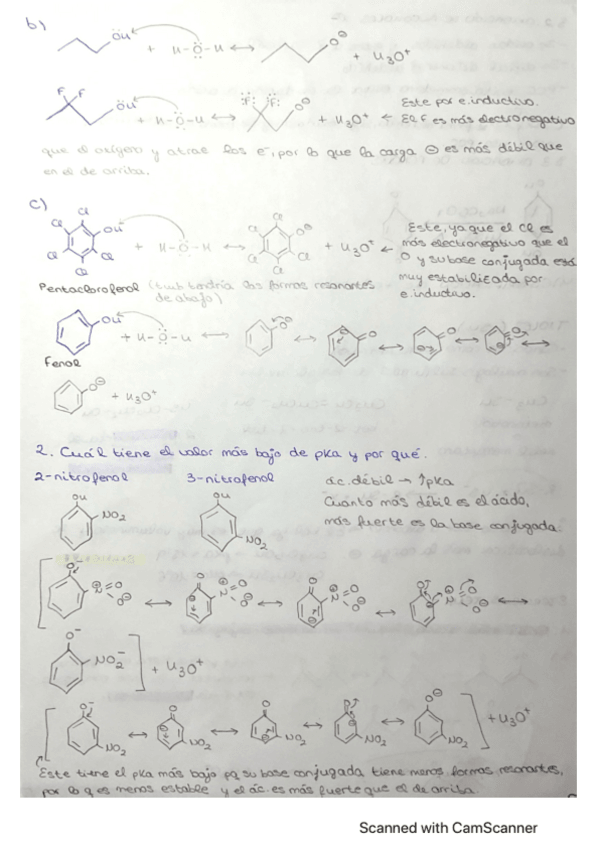 b)
OH + H-O-H ↔ O⊖ + H3O+
F F
OH + H-O-H ↔ F F O⊖ + H3O+ ← Este por e.inductivo.
El F es más electronegativo
que el oxígeno y atrae los e-, por lo que la carga ⊖ es más débil que
en el de arriba.
c)
Cl Cl OH Cl Cl Cl + H-O-H ↔ Cl Cl O⊖ Cl Cl Cl + H3O+ ←
Este, ya que el Cl es
más electronegativo que el
O y su base conjugada está
muy estabilizada por
e.inductivo.
Pentaclorofenol (tamb tendría las formas resonantes
de abajo)
OH + H-O-H ↔ O⊖ ↔ O ↔ O ↔ O ↔
Fenol
O⊖ + H3O+
2. Cuál tiene el valor más bajo de pKa y por qué.
2-nitrofenol 3-nitrofenol
ác. débil → ↑pKa
Cuanto más débil es el ácido,
más fuerte es la base conjugada.
OH NO2 OH NO2
O- N=O O⊖ ↔ O N=O O⊖ ↔ O N=O O⊖ ↔ O N=O O⊖ ↔
O- NO2- + H3O+
O- NO2 ↔ O NO2 ↔ O NO2 ↔ O NO2 ↔ O⊖ NO2 + H3O+
Este tiene el pKa más bajo pq su base conjugada tiene menos formas resonantes,
por lo q es menos estable y el ác. es más fuerte que el de arriba.
Scanned with CamScanner